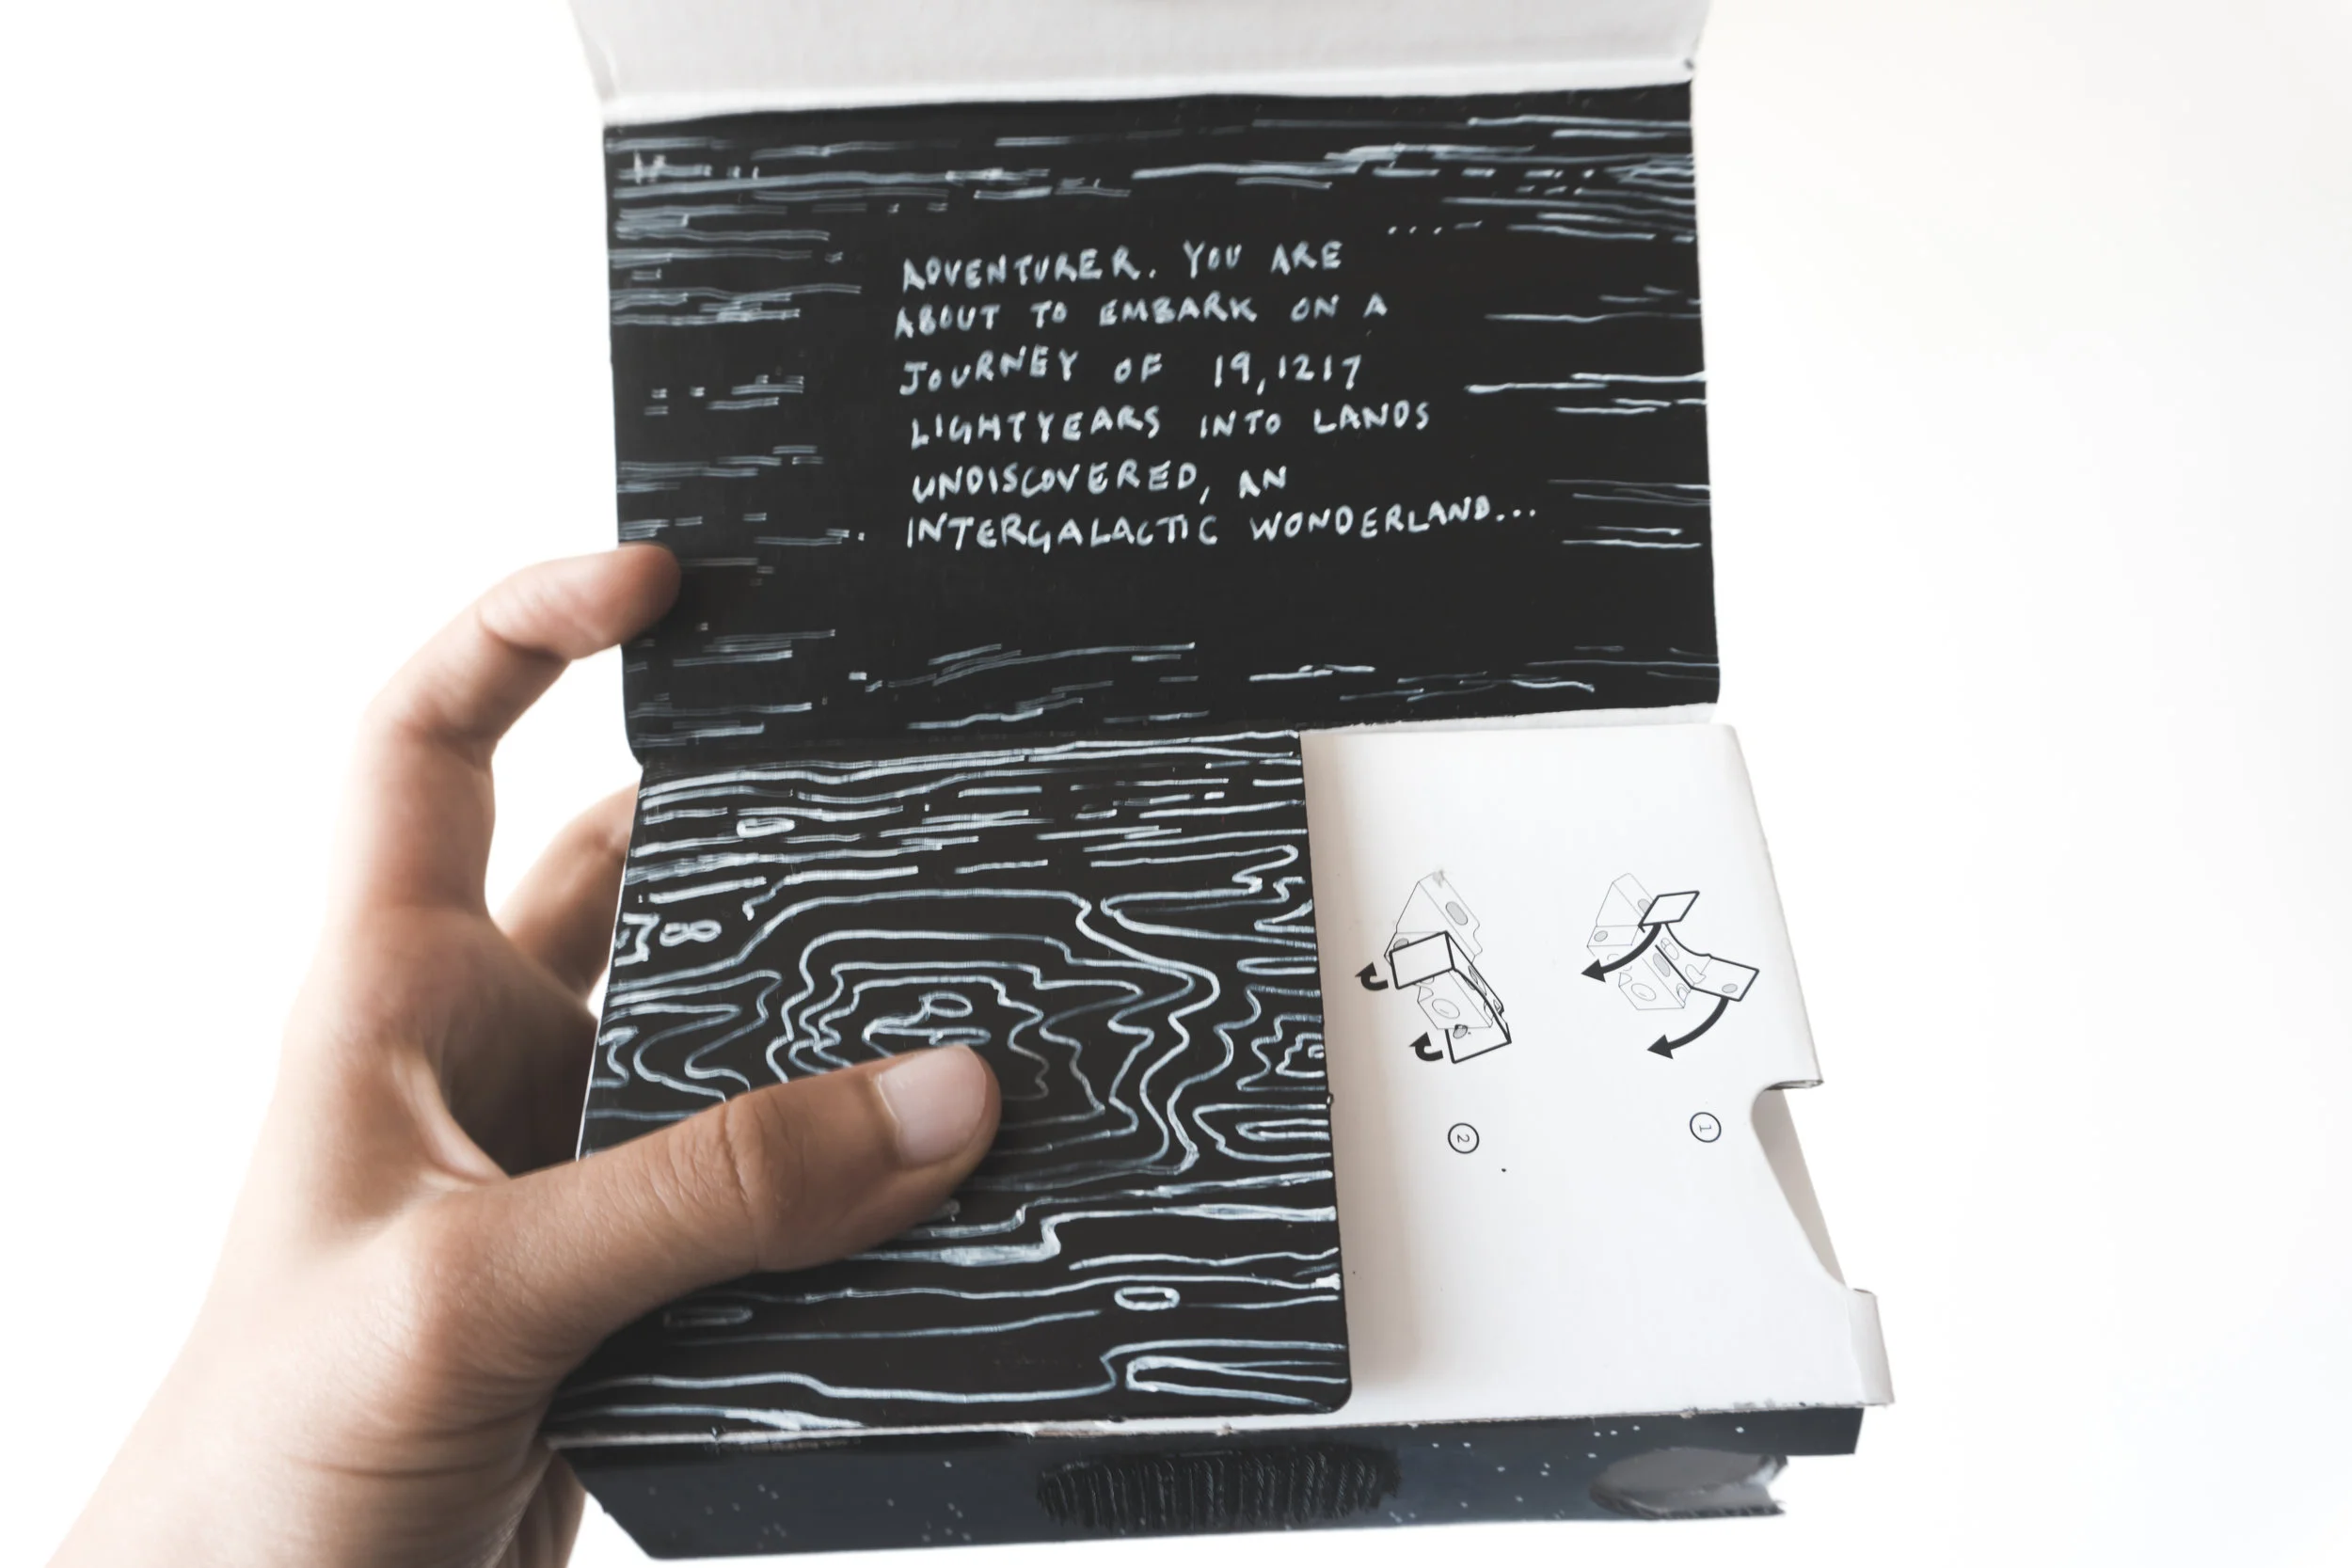 ADVENTURER. YOU ARE
ABOUT TO EMBARK ON A
JOURNEY OF 19,1217
LIGHTYEARS INTO LANDS
UNDISCOVERED, AN
INTERGALACTIC WONDERLAND...
2
1